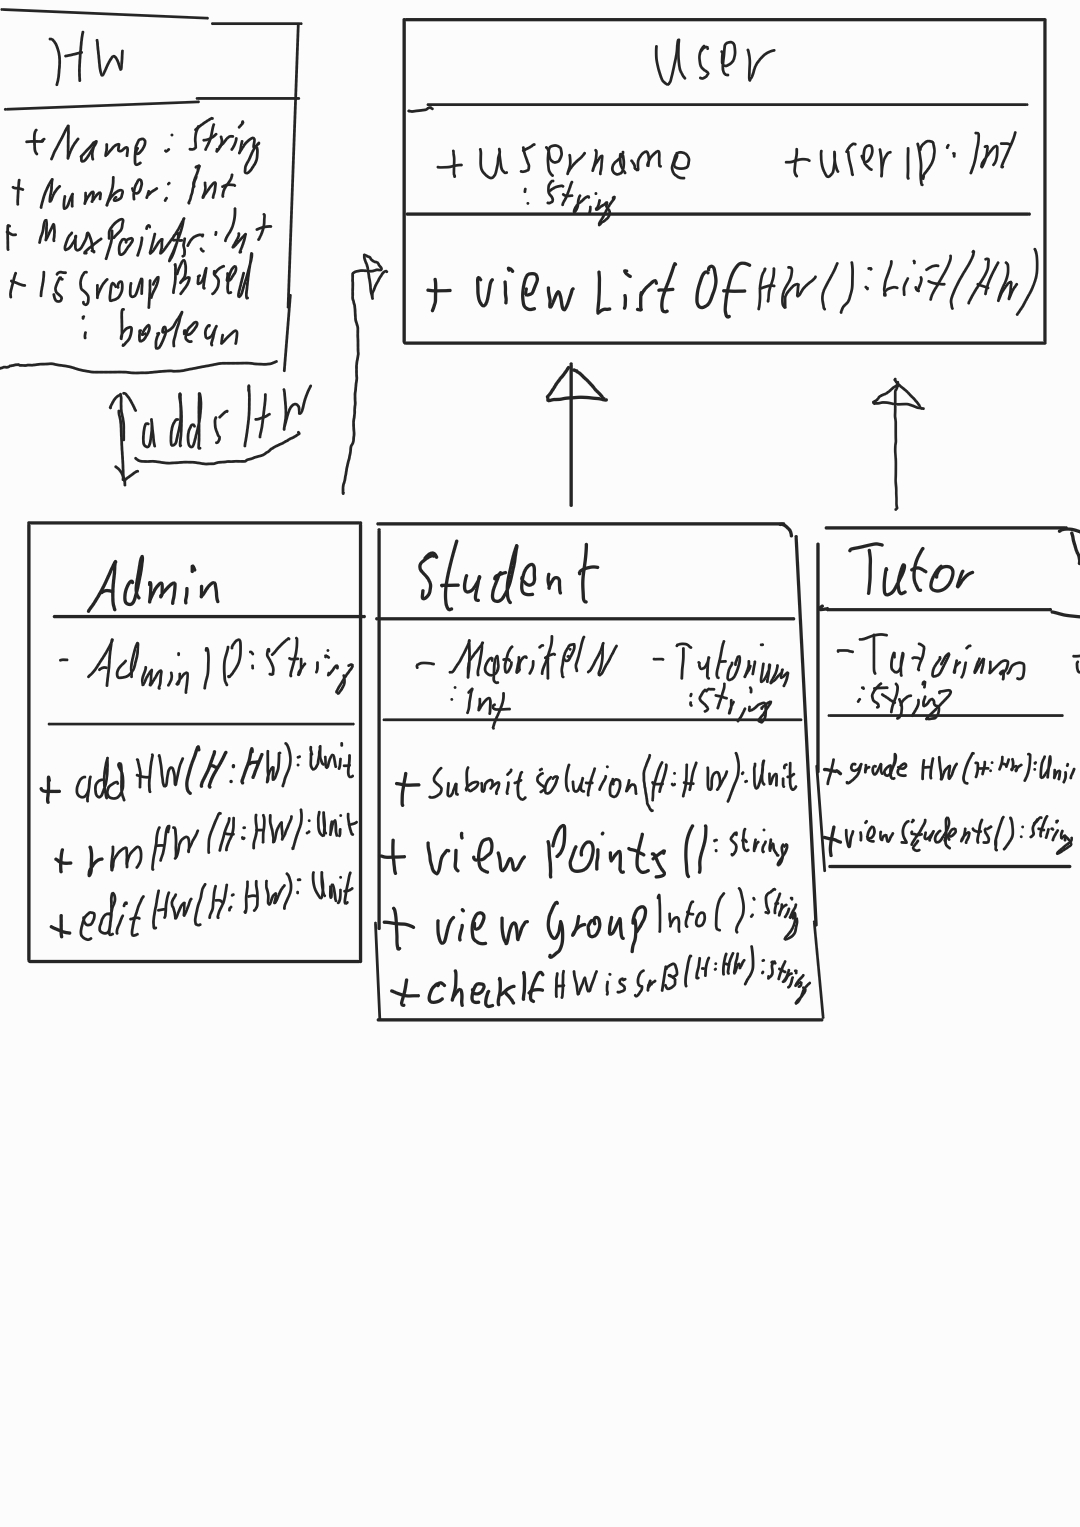 HW
+ Name : String
+ Number : Int
+ MaxPoints : Int
+ IsGroupBased
: boolean
User
+ Username
: String
+ userID : Int
+ viewListOfHw() : List(Hw)
adds HW
Admin
- AdminID : String
+ addHW(H : HW) : Unit
+ rmHW(H : HW) : Unit
+ editHW(H : HW) : Unit
Student
: Int
: String
+ SubmitSolution(H : HW) : Unit
+ viewPoints() : String
+ viewGroupInfo() : String
+ checkIfHWisGrB(H : HW) : String
Tutor
: String
+ gradeHW(H : HW) : Unit
+ viewStudents() : String